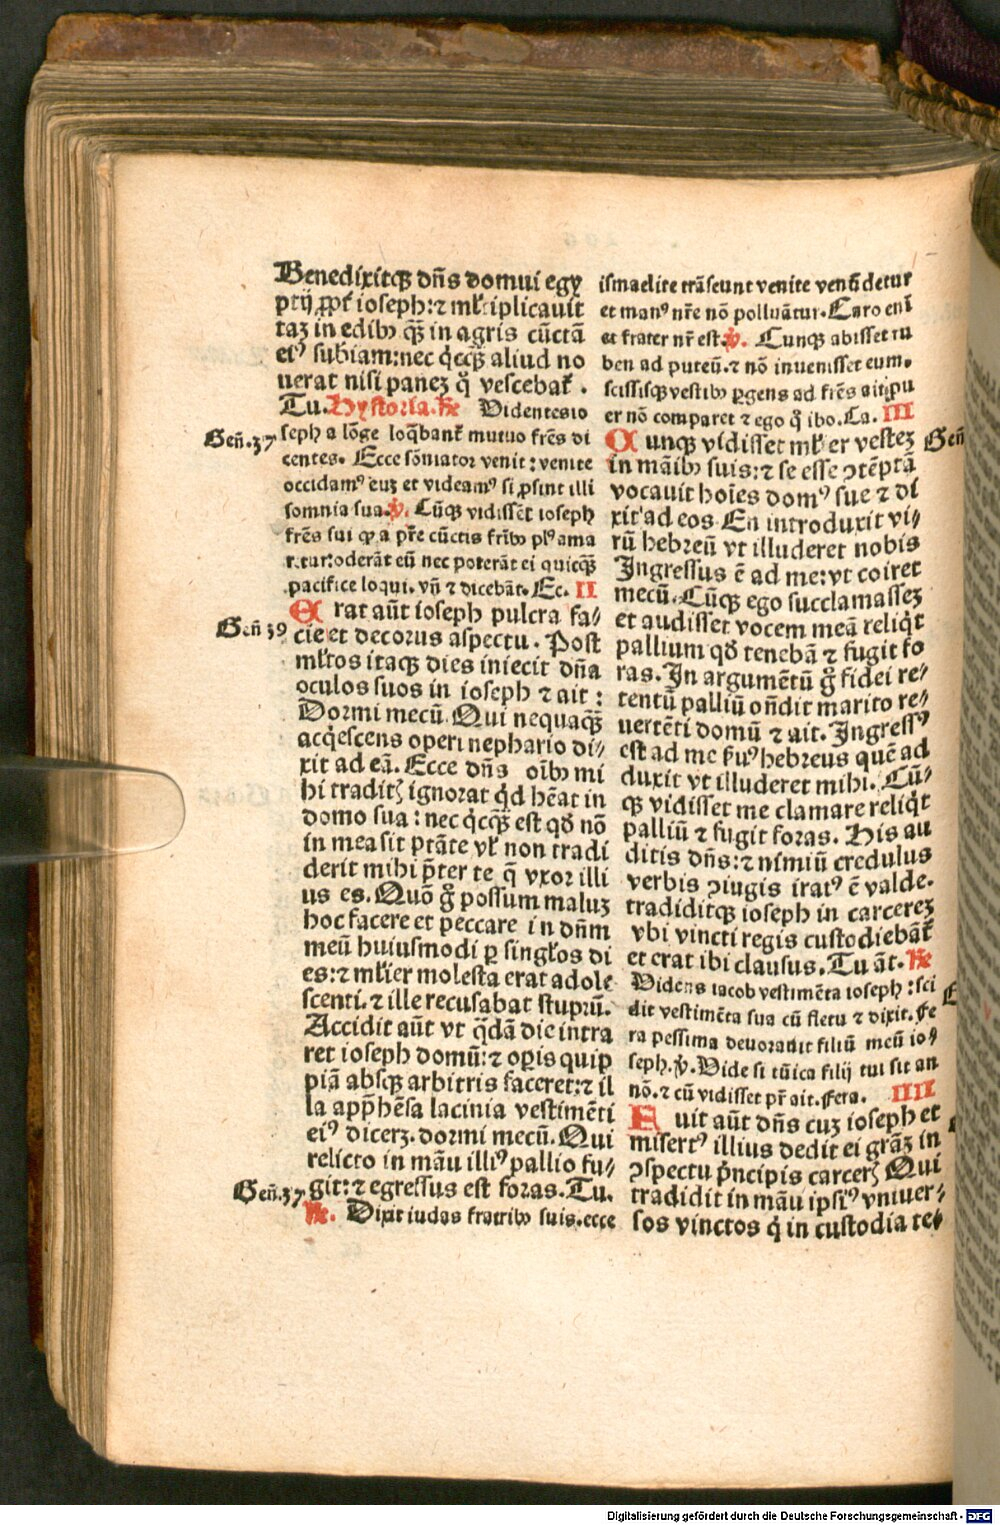 Benedixitqꝫ dñs domui egy
ptij ꝓpt̉ ioseph: ⁊ ml̉tiplicauit
taꝫ in edibꝰ qꝫ̃ in agris cũctã
eiꝰ subiam: nec q̇cqꝫ̃ aliud no
uerat nisi paneꝫ q̊ vescebat̉.
Tu. Hystoria. R̃e Videntes io
Geñ.37
seph a lõge loq̃bant̉ mutuo fr̃es di
centes. Ecce sõniator venit: venite
occidamꝰ euꝫ et videamꝰ si ꝓsint illi
somnia sua. ℣. Cũqꝫ vidissẽt ioseph
fr̃es sui ꝙ a pr̃e cũctis fr̃ibꝰ plꝰ ama
retur: oderãt eũ nec poterãt ei quicqꝫ̃
pacifice loqui. vñ ⁊ dicebãt. Ec. II
Geñ 39
Erat aũt ioseph pulcra fa⸗
cie et decorus aspectu. Post
ml̉tos itaqꝫ dies iniecit dña
oculos suos in ioseph ⁊ ait:
Dormi mecũ. Qui nequaqꝫ̃
acq̇escens operi nephario di⸗
xit ad eã. Ecce dñs oĩbꝰ mi
hi traditꝭ ignorat q̇d hẽat in
domo sua: nec q̇cqꝫ̃ est qď nõ
in mea sit ptãte vl̉ non tradi
derit mihi p̃ter te q̃ vxor illi
us es. Quõ g̊ possum maluꝫ
hoc facere et peccare in dñm
meũ huiusmodi ꝑ singl̉os di
es: ⁊ ml̉ier molesta erat adole
scenti. ⁊ ille recusabat stuprũ.
Accidit aũt vt q̃dã die intra
ret ioseph domũ: ⁊ oꝑis quip
piã absqꝫ arbitris faceret: ⁊ il
la app̃hẽsa lacinia vestimẽti
eiꝰ dicerꝫ. dormi mecũ. Qui
relicto in mãu illiꝰ pallio fu⸗
Geñ.37
git: ⁊ egressus est foras. Tu.
R̃e. Dixit iudas fratribꝰ suis. ecce
ismaelite trãseunt venite venũdetur
et manꝰ nr̃e nõ polluãtur. Caro eni̅
et frater nr̃ est. ℣. Cunqꝫ abisset ru
ben ad puteũ. ⁊ nõ inuenisset eum.
scissisqꝫ vestibꝰ ꝑgens ad fr̃es ait: pu
er nõ comparet ⁊ ego q̊ ibo. Ca. III
Geñ
Cunqꝫ vidisset ml̉ier vesteꝫ
in mãibꝰ suis: ⁊ se esse ↄtẽptã
vocauit hoĩes domꝰ sue ⁊ di
xit ad eos. En introduxit vi⸗
rũ hebreũ vt illuderet nobis
Ingressus ẽ ad me: vt coiret
mecũ. Cũqꝫ ego succlamasseꝫ
et audisset vocem meã reliq̇t
pallium qď tenebã ⁊ fugit fo
ras. In argumẽtũ g̊ fidei re⸗
tentũ palliũ oñdit marito re⸗
uertẽti domũ ⁊ ait. Ingressꝰ
est ad me ẜuꝰ hebreus quẽ ad
duxit vt illuderet mihi. Cũ⸗
qꝫ vidisset me clamare reliq̇t
palliũ ⁊ fugit foras. His au
ditis dñs: ⁊ nimiũ credulus
verbis ↄiugis iratꝰ ẽ valde.
tradiditqꝫ ioseph in carcereꝫ
vbi vincti regis custodiebãt̉
et erat ibi clausus. Tu ãt. R̃e
Videns iacob vestimẽta ioseph: sci
dit vestimẽta sua cũ fletu ⁊ dixit. Fe
ra pessima deuorauit filiũ meũ io⸗
seph. ℣. Vide si tũica filij tui sit an
nõ. ⁊ cũ vidisset pr̃ ait. Fera. IIII
Fuit aũt dñs cuꝫ ioseph et
misertꝰ illius dedit ei grãꝫ in
ↄspectu p̃ncipis carcerꝭ Qui
tradidit in mãu ipsiꝰ vniuer⸗
sos vinctos q̇ in custodia te⸗
Digitalisierung gefördert durch die Deutsche Forschungsgemeinschaft - DFG